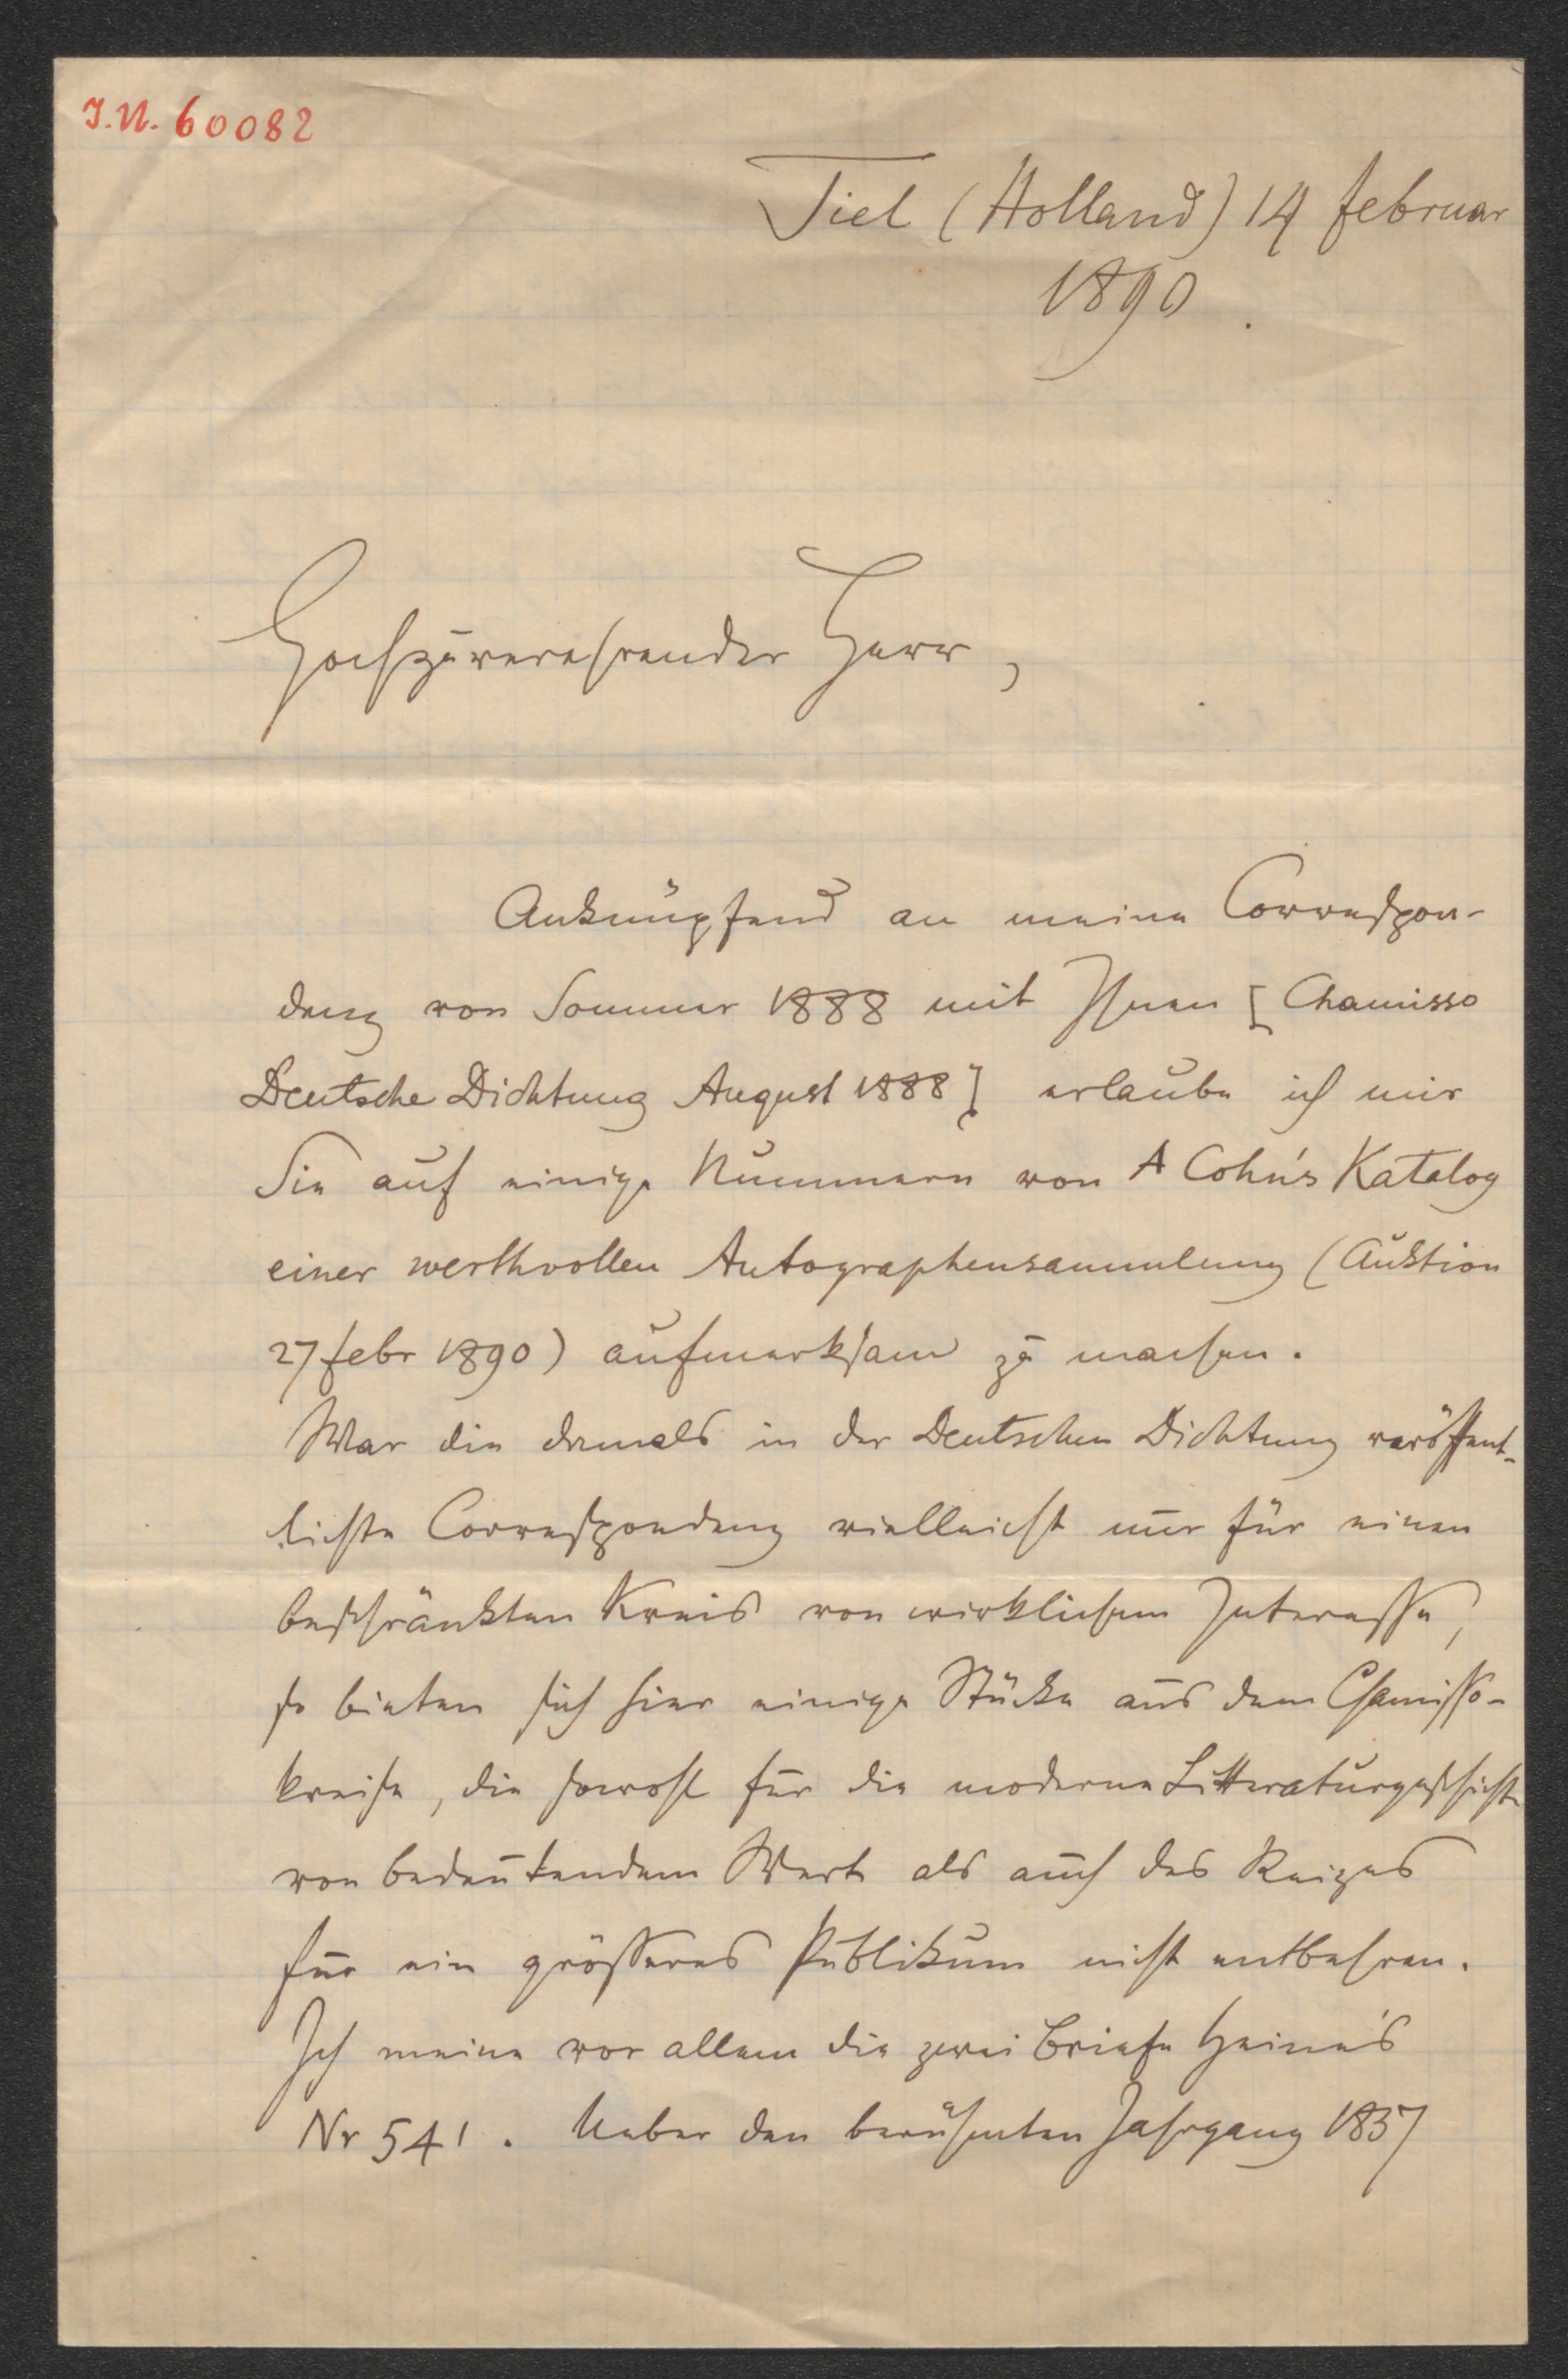 I.N. 60082
Tiel (Holland) 14 februar
1890.
Hochzuverehrender Herr,
Anknüpfend an meine Correspon-
denz von Sommer 1888 mit Ihnen [Chamisso
Deutsche Dichtung August 1888] erlaube ich mir
Sie auf einige Nummern von A Cohn's Katalog
einer werthvollen Autographensammlung (Auktion
27 febr 1890) aufmerksam zu machen.
War die damals in der Deutschen Dichtung veröffent-
lichte Correspondenz vielleicht nur für einen
beschränkten Kreis von wirklichem Interesse,
so bieten sich hier einige Stücke aus dem Chamisso-
kreise, die sowohl für die moderne Litteraturgeschichte
von bedeutendem Wert als auch des Reizes
für ein grösseres Publikum nicht entbehren.
Ich meine vor allem die zwei Briefe Heine's
Nr 541. Ueber den berühmten Jahrgang 1837